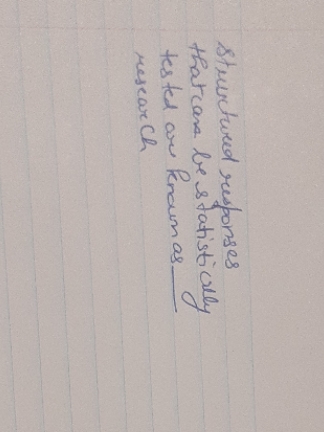 Structured responses
that can be statistically
tested are known as ____
research